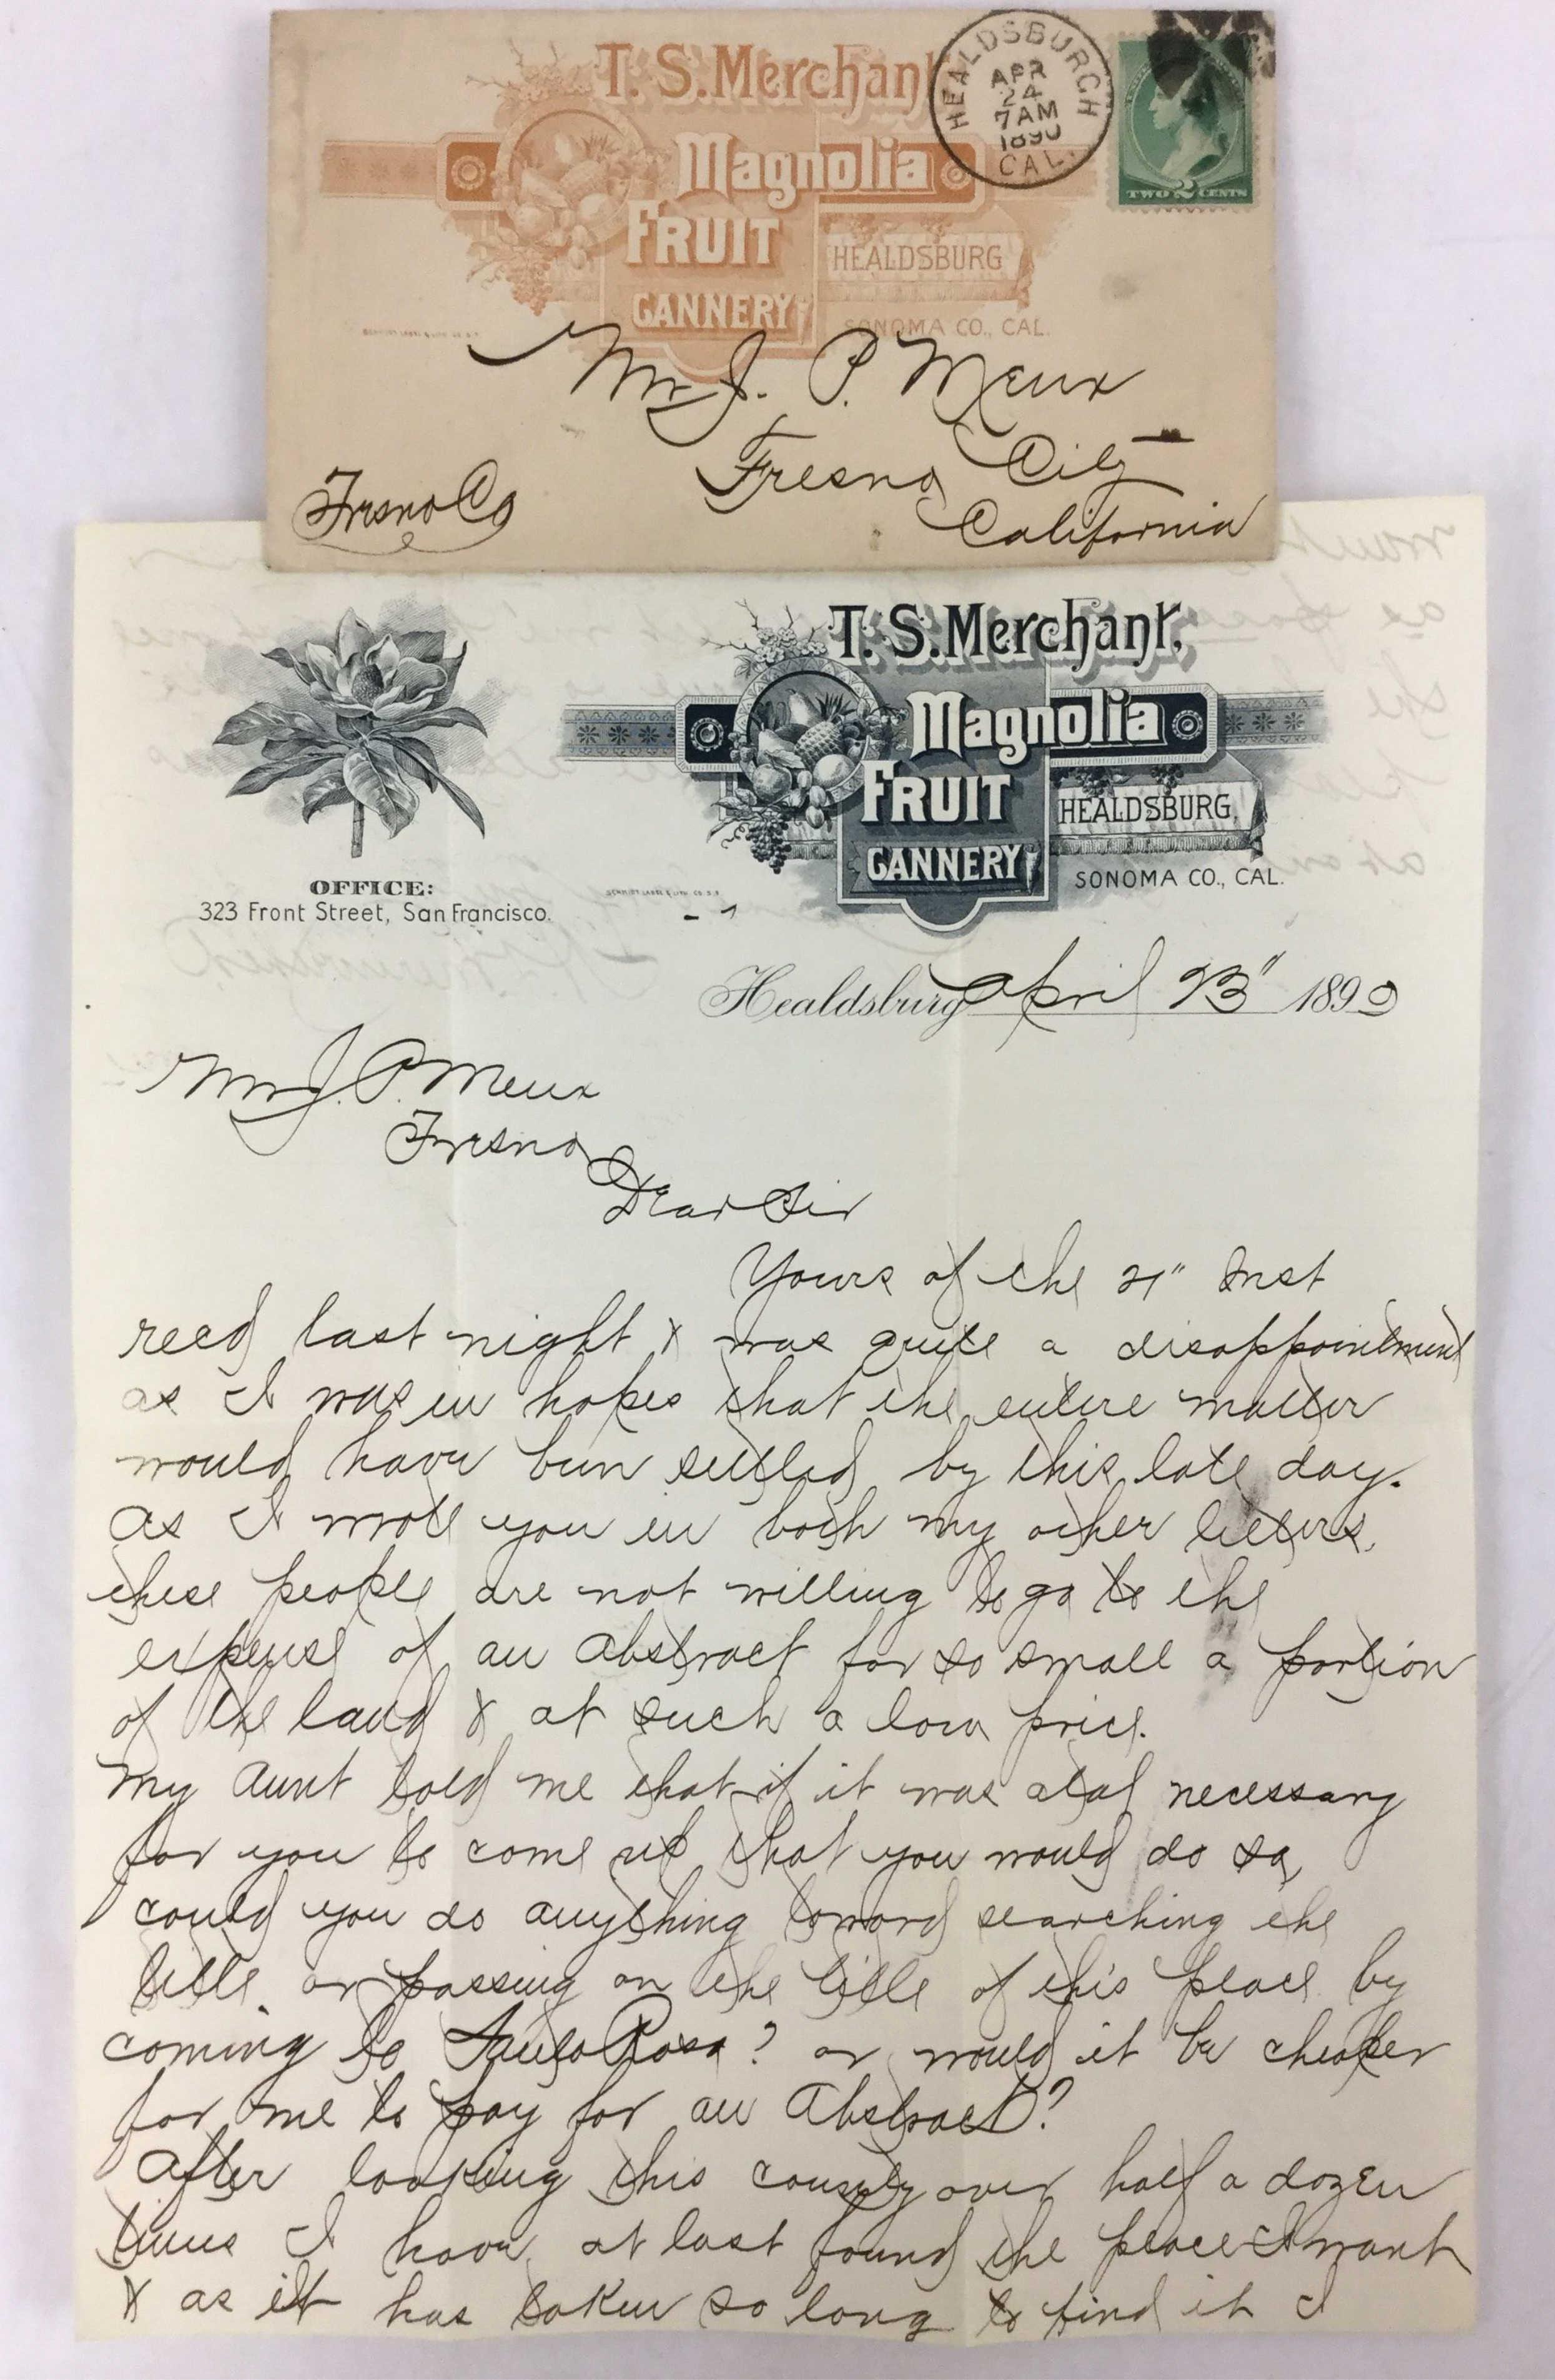 T. S. Merchant
Magnolia
FRUIT
CANNERY
HEALDSBURG
SONOMA CO., CAL.
HEALDSBURGH
APR
24
7AM
1890
CAL.
TWO 2 CENTS
Mr J. P. Meux
Fresno City
California
Fresno Co
T. S. Merchant,
Magnolia
FRUIT
CANNERY
HEALDSBURG,
SONOMA CO., CAL.
OFFICE:
323 Front Street, San Francisco.
SCHMIDT LABEL & LITH. CO. S.F.
Healdsburg April 23" 1890
Mr J. P. Meux
Fresno
Dear Sir
Yours of the 21" Inst
recd last night & was quite a disappointment
as I was in hopes that the entire matter
would have been settled by this late day.
As I wrote you in both my other letters,
these people are not willing to go to the
expense of an Abstract for so small a portion
of the land & at such a low price.
My Aunt told me that if it was atal necessary
for you to come up that you would do so,
could you do anything toward searching the
title or passing on the title of this place by
coming to Santa Rosa? or would it be cheaper
for me to pay for an Abstract?
After looking this county over half a dozen
times I have at last found the place I want
& as it has taken so long to find it I